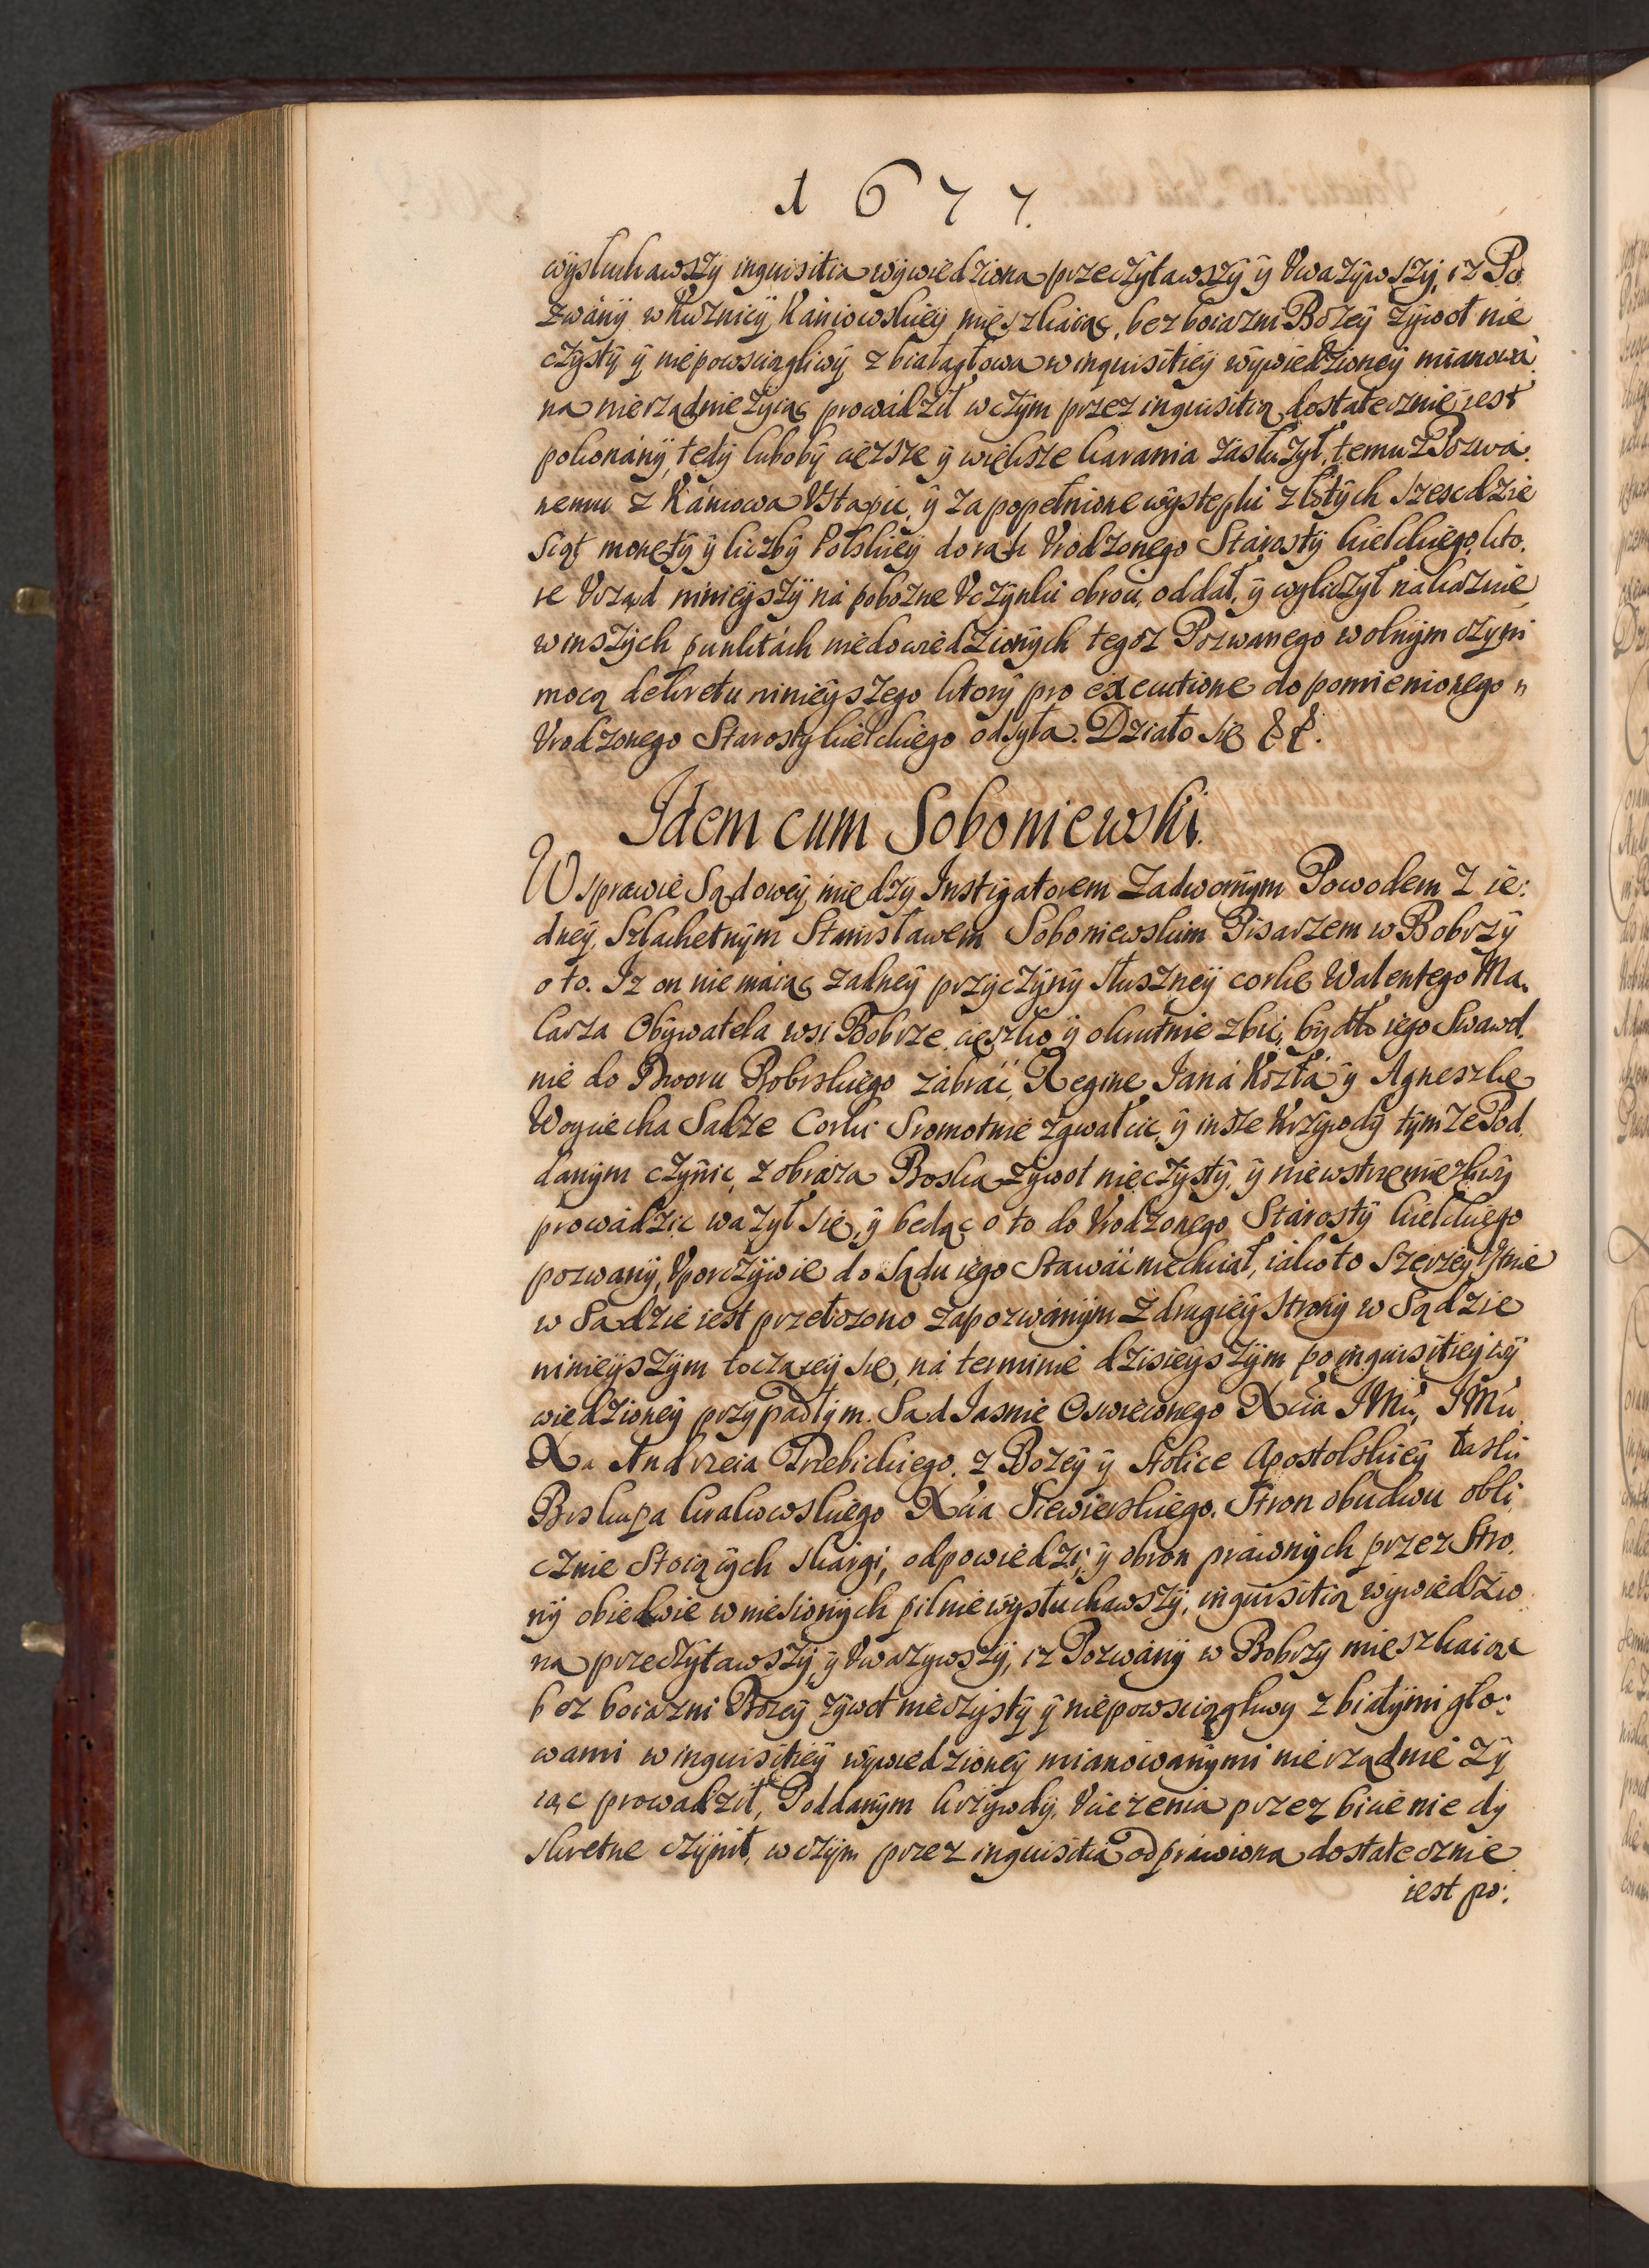 1677.
wysłuchawszy inquisitia wywiedziona przeczytawszy y Vwazywszy, iz Po
zwány w Kuznicy Kániowskiey mięszkaiąc, bez boiazni Bożey żywot nie
czysty y niepowsciągliwy z białągłowa w inquisitiey wywiedzioney mianowá
na nierządnie żyiąc prowádził w czym przez inquisitią dostatecznie iest
pokonány, tedy luboby cięższe y większe karania zasłużył, temuż Pozwá
nemu z Kániowa Vstąpic, y za popełnione występki złotych szescdzie
siąt monety y liczby Polskiey do rąk Vrodzonego Stárosty kielckiego, kto
re Vrząd ninieyszy ná pobożne Vczynki obroci, oddał, y wyliczył nakaznie
w inszych punktách niedowiedzionych tegoż Pozwanego wolnym czyni
mocą dekretu ninieyszego ktory pro executione do pomienionego
Vrodzonego Starosty kielckiego odsyła. Działo się &&.
Idem cum Soboniewski.
W sprawie Sądowey, między Instigatorem Zadwornym Powodem z ie:
dney, Szlachetnym Stanisławem Soboniewskim Pisarzem w Bobrzy
o to. Iz on nie máiąc żadney przyczyny słuszney corke Walentego Ma
larza Obywatela wsi Bobrze, cięszko y okrutnie zbić, bydło iego Swawol
nie do Dworu Bobrskiego zábráć, Regine Janá Kozłá y Agneszke
Woyciecha Sadze Corki Sromotnie zgwałcic, y insze krzywdy tymże Pod
danym czynic, z obráza Boska żywot nieczysty, y niewstrzemięzliwy
prowádzic ważył się, y będąc o to do Vrodzonego Stárosty kielckiego
pozwany, Vporczywie do sądu iego Stawáć niechciał, iáko to Szerzey Vstnie
w Sądzie iest przełożono zapozwánym z drugiey strony w Sądzie
ninieyszym toczącey się, ná terminie dzisieyszym po inquisitiey wy
wiedzioney przypadłym. Sąd Jasnie Oswieconego Xcia JMci, JMci
Xa Andrzeia Trzebickiego, z Bożey y Stolice Apostolskiey łaski
Biskupa krakowskiego Xcia Siewierskiego. Stron obudwu obli
cznie Stoiących skárgi, odpowiedzi, y obron práwnych przez Stro
ny obiedwie wniesionych pilnie wysłuchawszy, inquisitią wywiedzio
na przeczytawszy y Vwazywszy, iz Pozwány w Bobrzy mieszkaiąc
bez boiazni Bożey żywot nieczysty y niepowsciągliwy z białymi gło:
wami w inquisitiey wywiedzioney mianowánymi nierządnie ży
iąc prowadził, Poddanym krzywdy, Vciążenia przez bicie nie dy
skretne czynił, w czym przez inquisitia odprawiona dostatecznie
iest po: